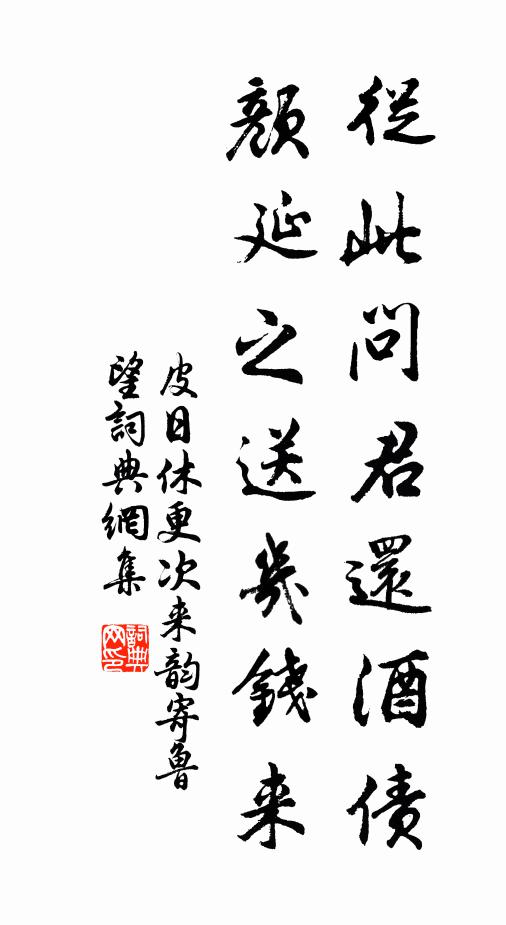 從此問君還酒債
顏延之送幾錢來
皮日休更次来韵寄魯
望詞典網集
詞典
网印